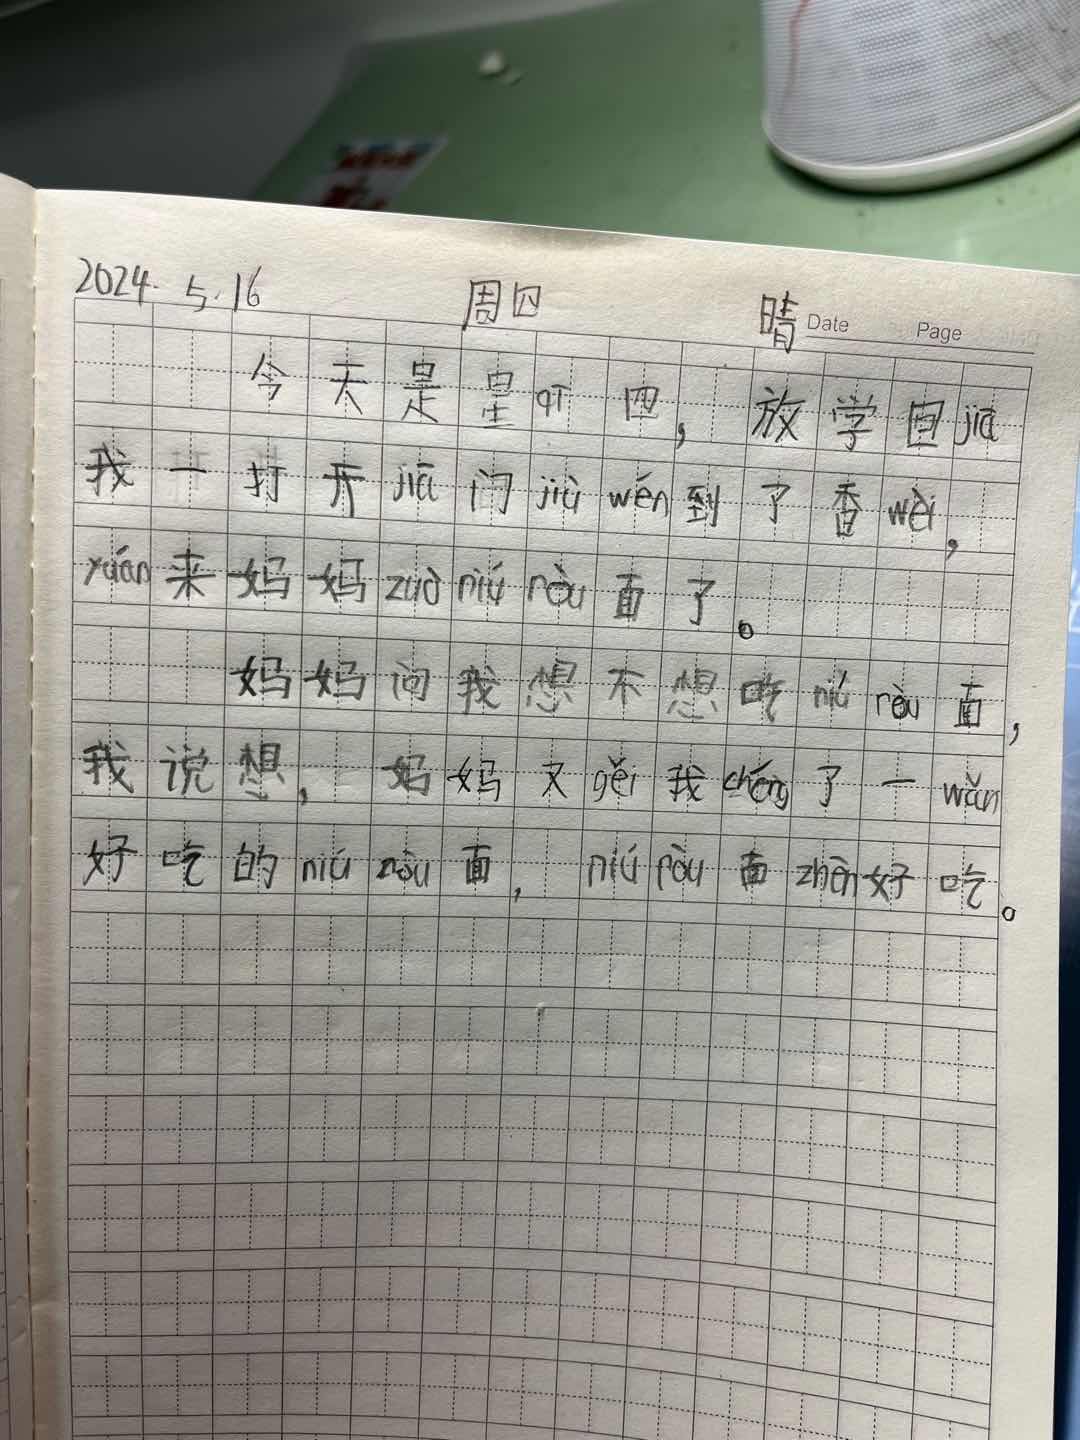 2024. 5. 16 周四 晴 Date Page
今天是星qī四，放学回jiā
我一打开jiā门jiù wén到了香wèi，
yuán来妈妈zuò niú ròu面了。
妈妈问我想不想吃niú ròu面，
我说想，妈妈又gěi我chéng了一wǎn
好吃的niú ròu面，niú ròu面zhēn好吃。